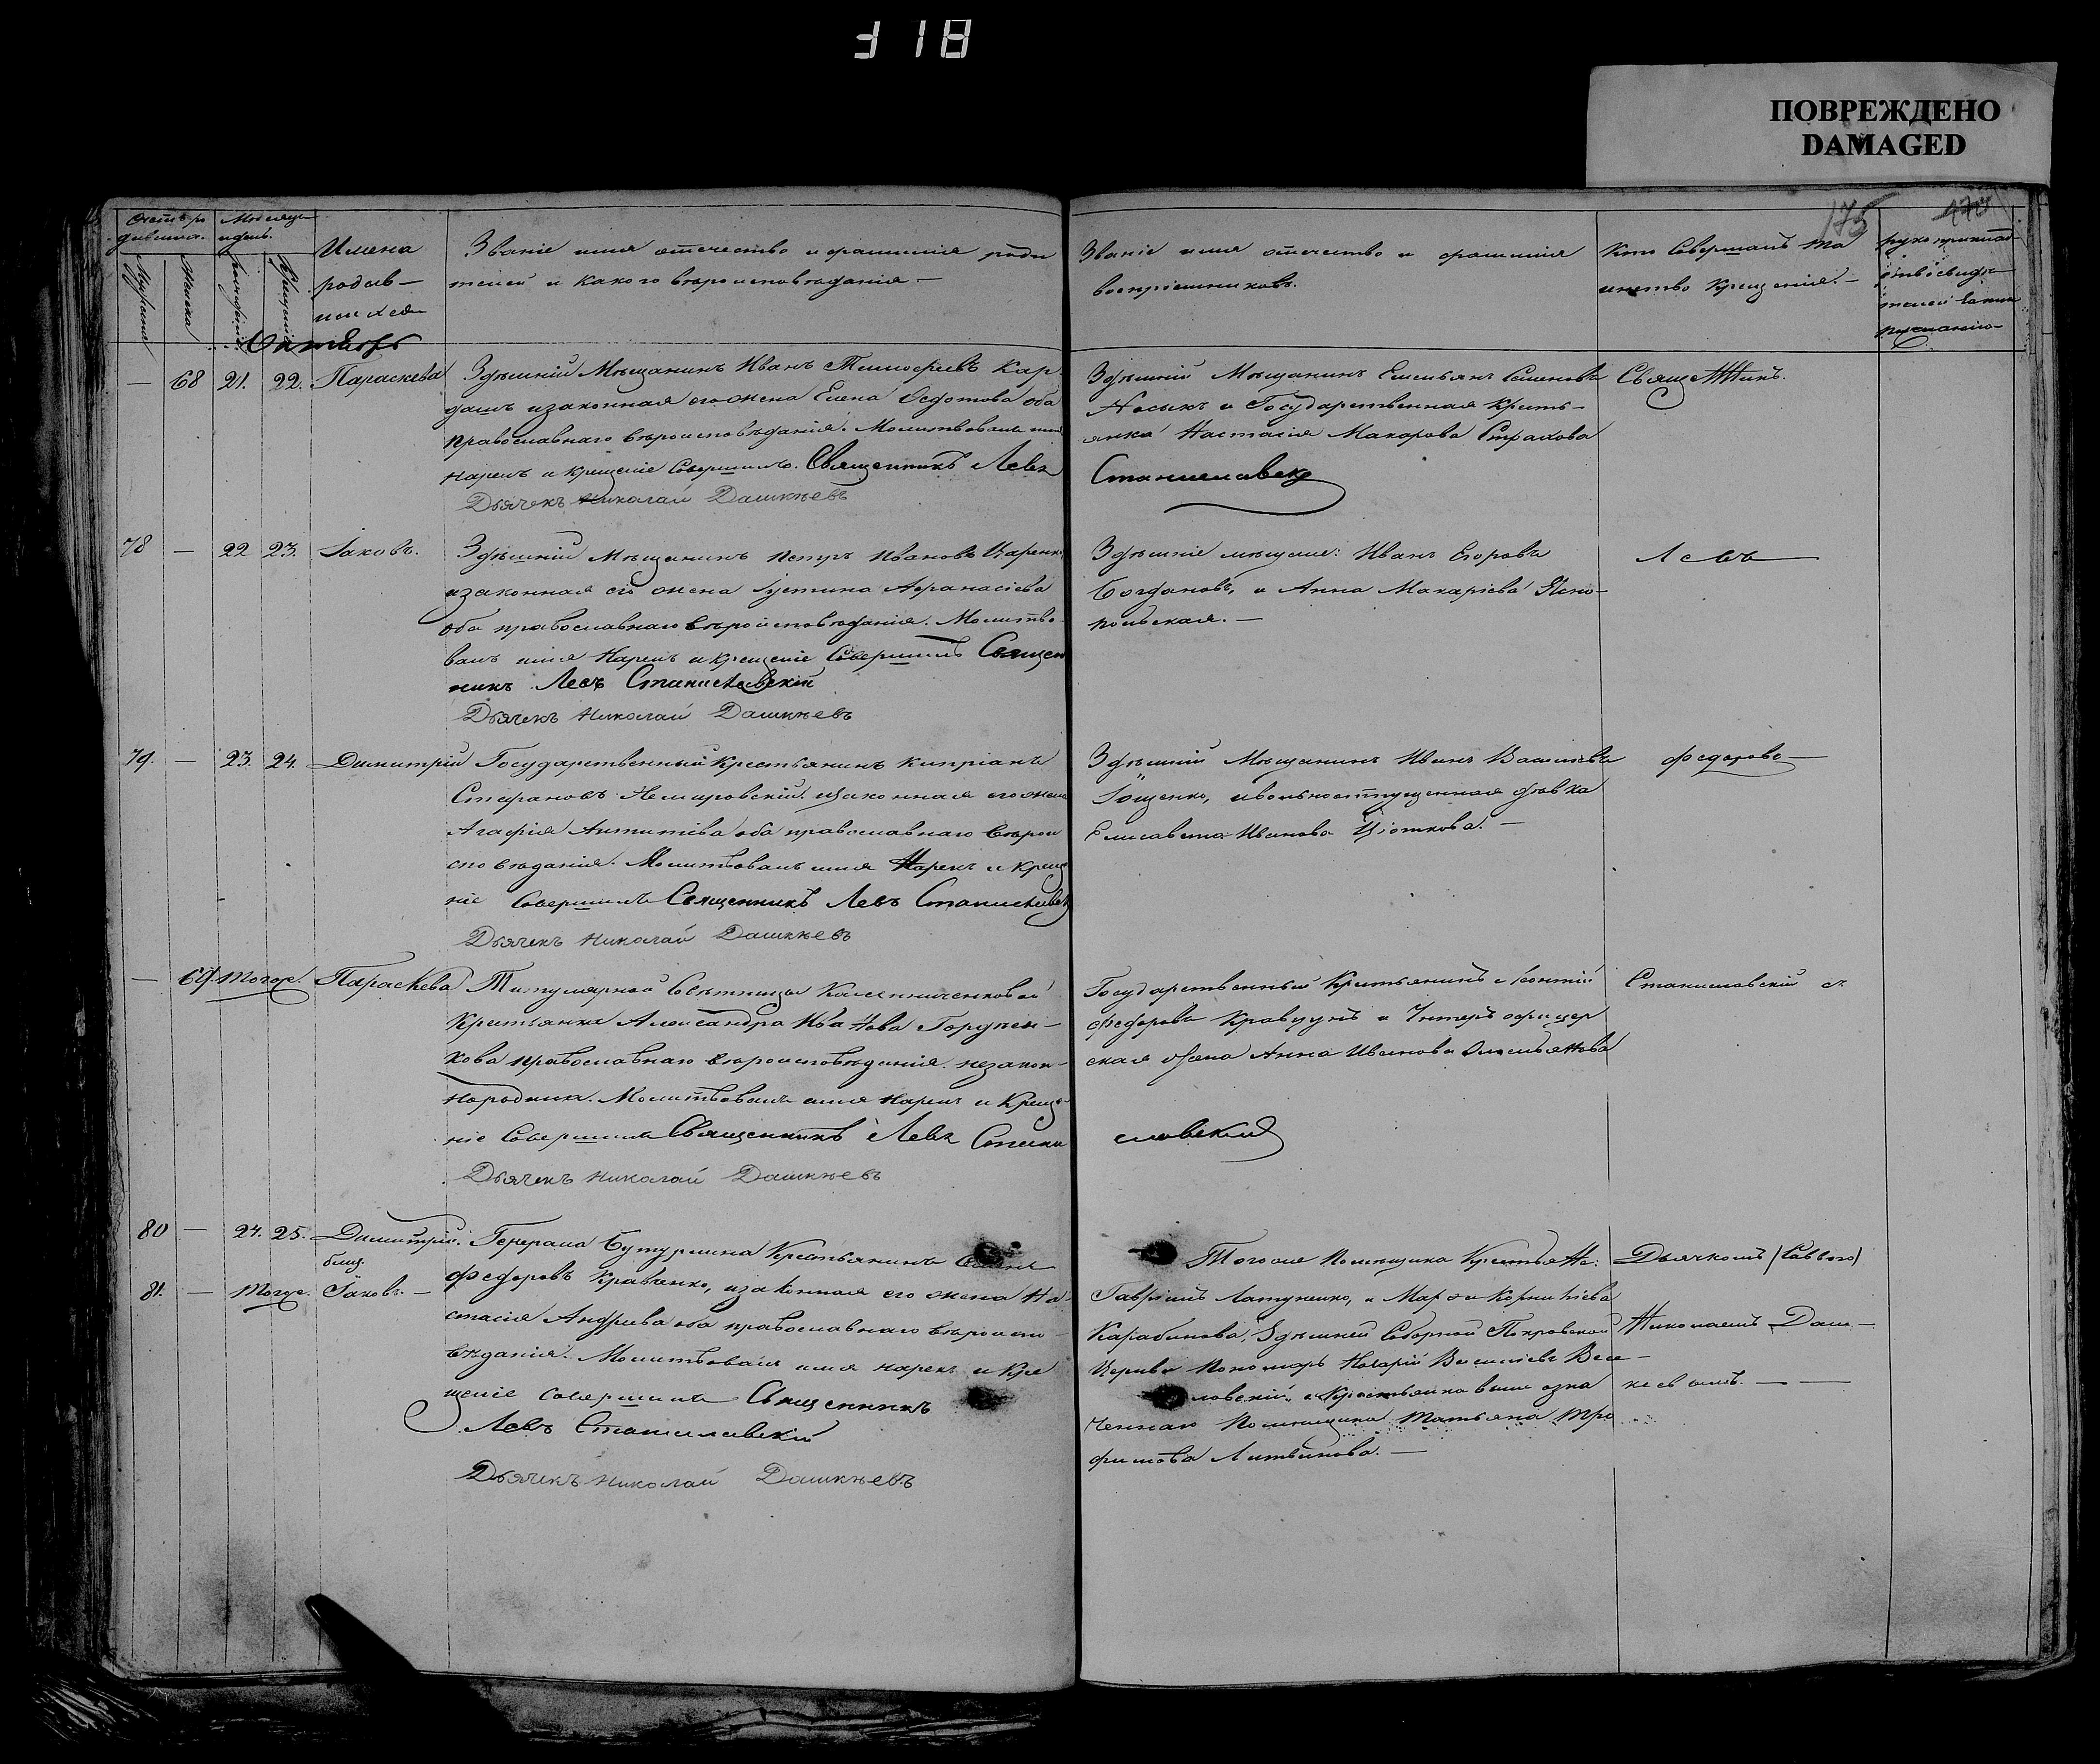 318
ПОВРЕЖДЕНО
DAMAGED
175
Счетъ ро
дившихся.
Мѣсяцъ
и день.
Мужеска
Женска
рожденія
крещенія
Имена
родив-
шихся
Званіе имя отечество и фамилія роди
телей и какого вѣроисповѣданія.—
Званіе имя отечество и фамилія
воспріемниковъ.
Кто совершалъ та
инство крещенія.—
рукоприклад
ство свидѣ
телей
Октябрь
— 68 21. 22. Параскева
Здѣшній Мѣщанинъ Иванъ Тимофеевъ Кар
дашъ и законная его жена Елена Федотова оба
православнаго вѣроисповѣданія. Молитвовалъ имя
нарекъ и крещеніе совершилъ. Священникъ Левъ
Дьячекъ Николай Дашкѣевъ
Здѣшній Мѣщанинъ Емельянъ Семеновъ
Носыкъ и Государственная Кресть-
янка Настасія Макарова Страхова
Станиславскій
Священникъ.
78 — 22 23. Іаковъ.
Здѣшній Мѣщанинъ Петръ Ивановъ Царенко
и законная его жена Іустина Афанасіева
оба православнаго вѣроисповѣданія. Молитво-
валъ имя нарекъ и крещеніе совершилъ Священ
никъ Левъ Станиславскій
Дьячекъ Николай Дашкѣевъ
Здѣшніе мѣщане: Иванъ Егоровъ
Богдановъ, и Анна Макаріева Ясно-
польская.—
Левъ
79. — 23. 24. Димитрій
Государственный Крестьянинъ Кипріанъ
Стефановъ и законная его жена
Агафія Антипіева оба православнаго вѣрои
сповѣданія. Молитвовалъ имя нарекъ и креще
ніе совершилъ Священникъ Левъ Станиславскій
Дьячекъ Николай Дашкѣевъ
Здѣшній Мѣщанинъ Иванъ Васильевъ
и вольноотпущенная дѣвка
Елисавета Иванова Цюткова.—
Федорово—
— 69. Тогоже. Параскева
Титулярной Совѣтницы
Крестьянка Александра Иванова Гордѣен-
кова православнаго вѣроисповѣданія. незакон-
нородника. Молитвовалъ имя нарекъ и креще-
ніе совершилъ Священникъ Левъ Стани
Дьячекъ Николай Дашкѣевъ
Государственный Крестьянинъ Леонтій
Федоровъ Кравцунъ и Унтеръ офицер
ская жена Анна Иванова Омельянова
славскій
Станиславскій съ
80 — 24. 25. Димитрій.
близ.
81. — Тогоже. Іаковъ.—
Генерала Бутурлина Крестьянинъ
Федоровъ Кравченко, и законная его жена На
стасія Андреева оба православнаго вѣроиспо
вѣданія. Молитвовалъ имя нарекъ и кре
щеніе совершилъ Священникъ
Левъ Станиславскій
Дьячекъ Николай Дашкѣевъ
Тогоже Помѣщика Крестьяне:
Гавріилъ Латуненко, и Марфа Корниліева
Карабинова, Здѣшней Соборной Покровской
Церкви Пономарь Назарій Васильевъ Весе-
ловскій, и Крестьянка выше озна
ченнаго Помѣщика Татьяна Тро
фимова Литвинова.—
Дьячкомъ
Николаемъ Даш-
кѣевымъ.— —